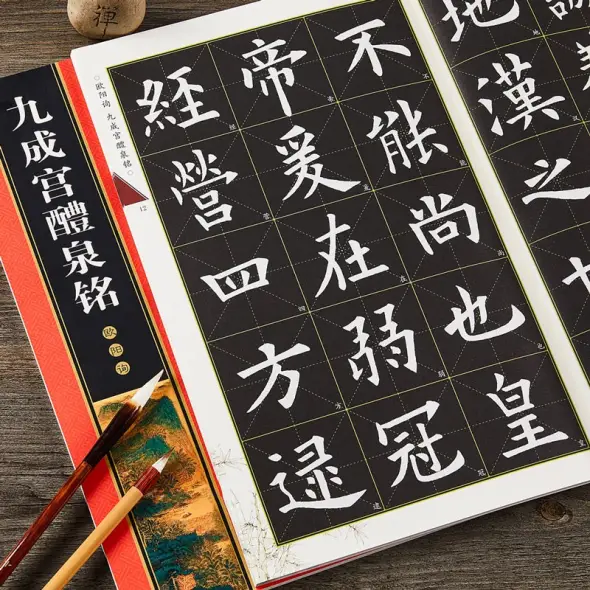 禪
九成宫醴泉铭
欧阳询
欧阳询 九成宫醴泉铭
12
地漢之
不能尚也皇
帝爰在弱冠
經營四方逮